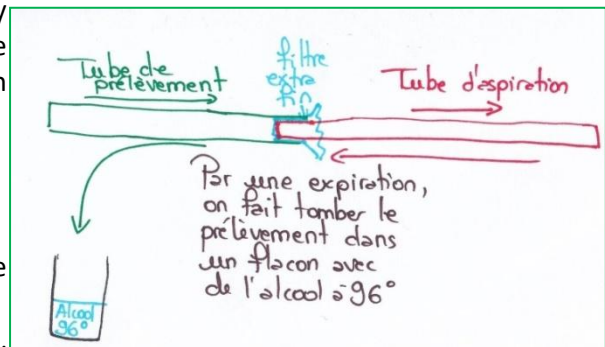 Tube de
prélèvement
filtre
extra
fin
Tube d'aspiration
Par une expiration,
on fait tomber le
prélèvement dans
un flacon avec
de l'alcool à 96°
Alcool
96°